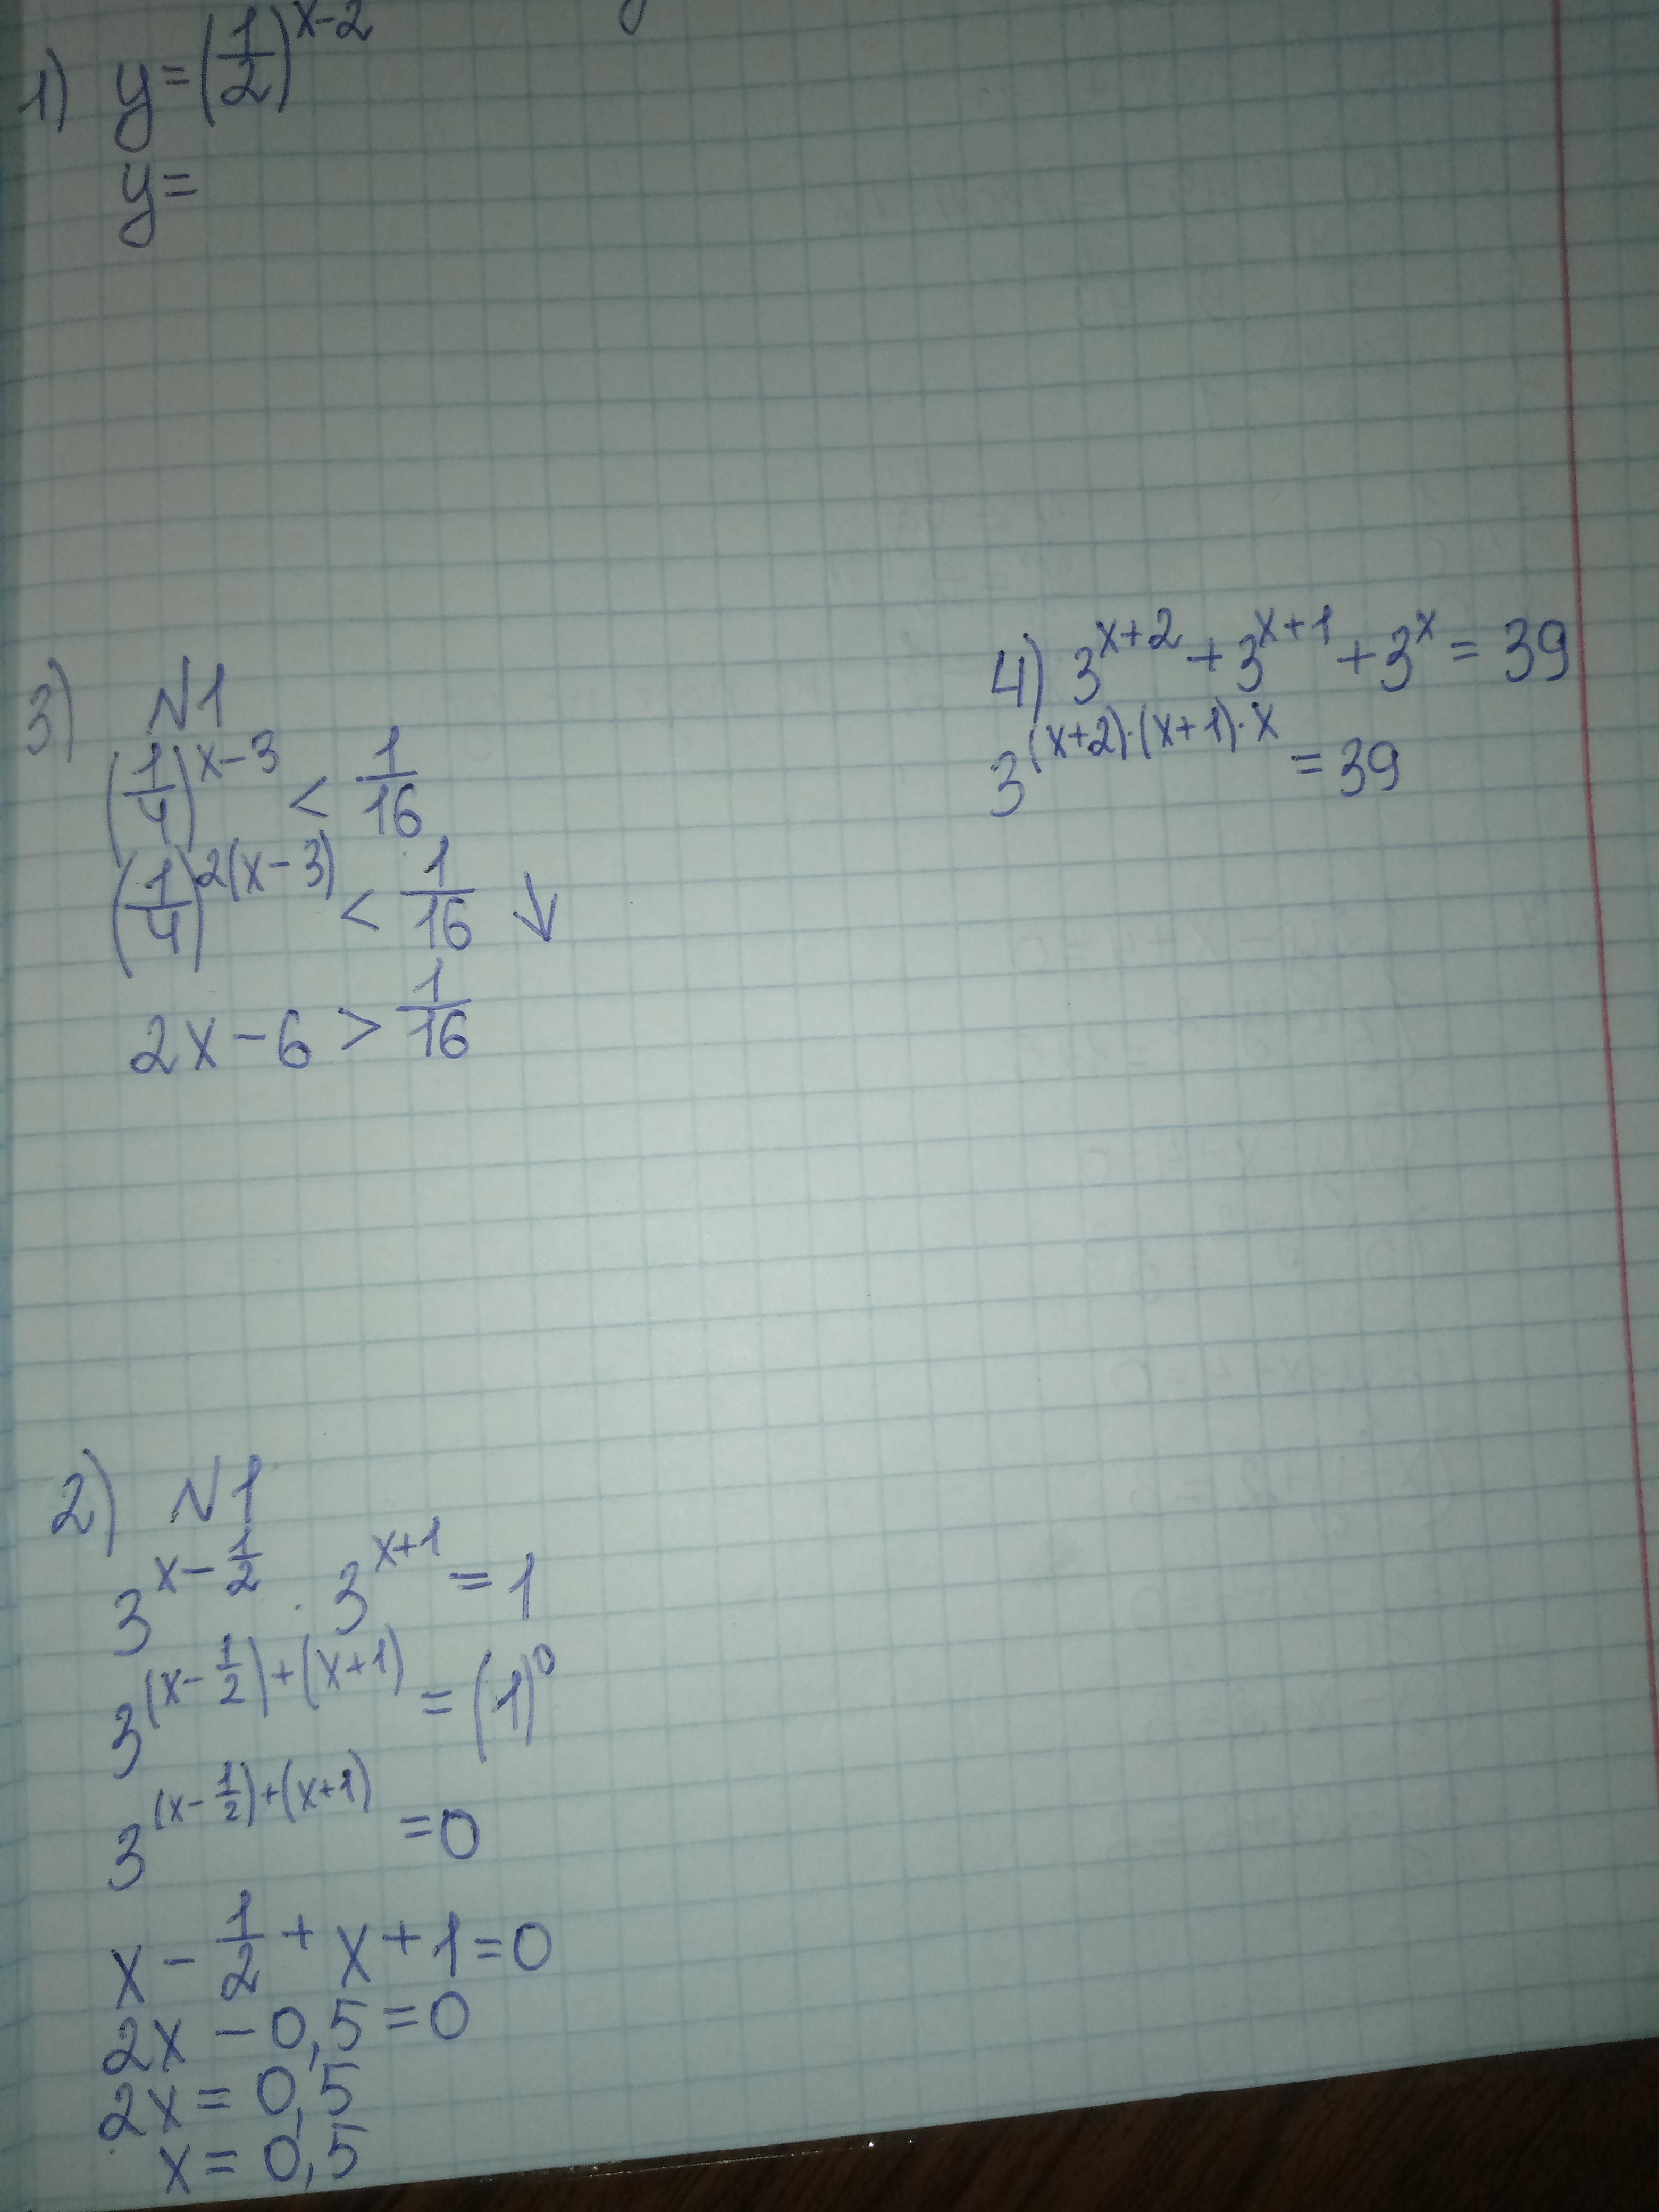 1) y=(1/2)^(x-2)
y=
3) N1
(1/4)^(x-3) < 1/16
(1/4)^(2(x-3)) < 1/16 ↓
2x-6 > 1/16
4) 3^(x+2)+3^(x+1)+3^x=39
3^((x+2)·(x+1)·x)=39
2) N1
3^(x-1/2) · 3^(x+1)=1
3^((x-1/2)+(x+1))=(1)^0
3^((x-1/2)+(x+1))=0
x-1/2+x+1=0
2x-0,5=0
2x=0,5
x=0,5